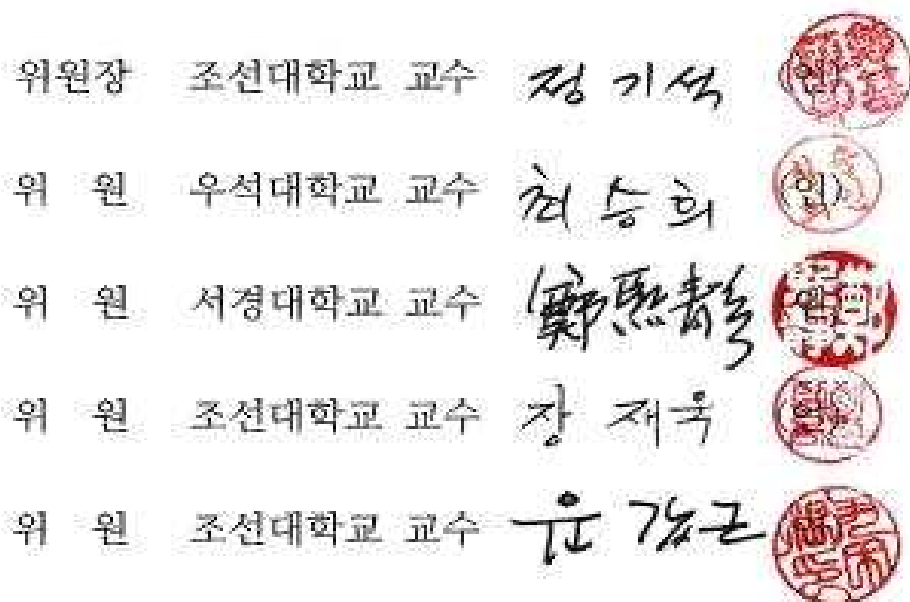 위원장 조선대학교 교수 정기석 (인)
위 원 우석대학교 교수 최승희 (인)
위 원 서경대학교 교수
위 원 조선대학교 교수 장재욱
위 원 조선대학교 교수 윤갑근